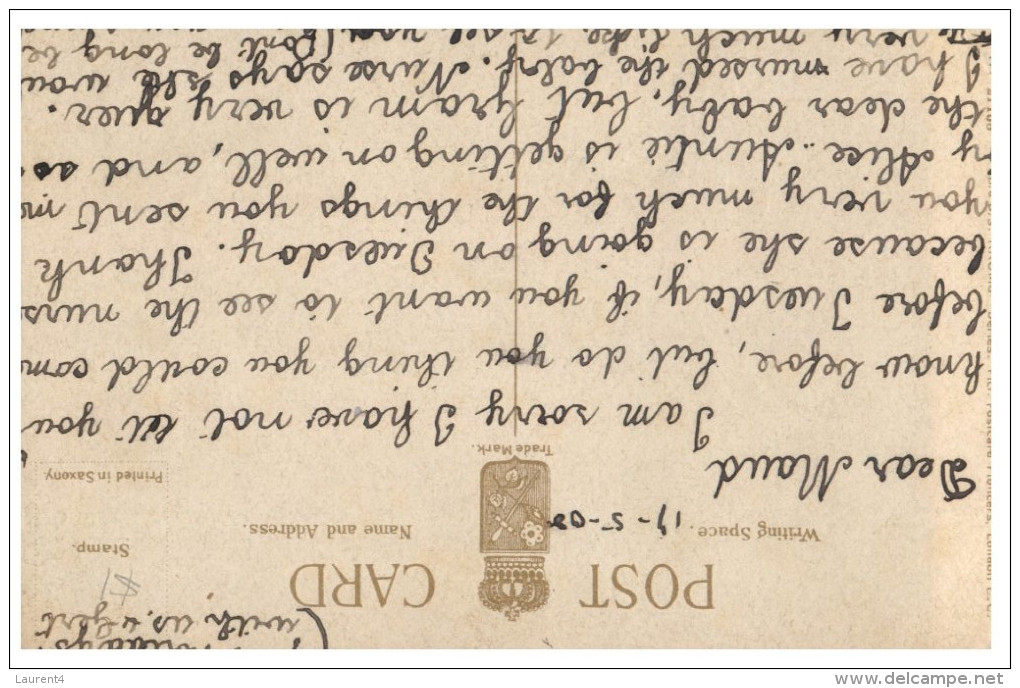 with us. & Gert
POST CARD
Stamp.
Writing Space.
17-5-08
Name and Address.
Printed in Saxony.
Trade Mark.
Dear Maud
I am sorry I have not let you
know before, but do you thing you could com
before Tuesday, if you want to see the nurs
because she is going on Tuesday. Thank
you very much for the things you sent m
ry Alice. Auntie is getting on well, and so
the dear baby, but Gram is very quer.
I have nursed the baby. Nurse says she wou
very much like to see you (Dont be long be
Laurent4
www.delcampe.net